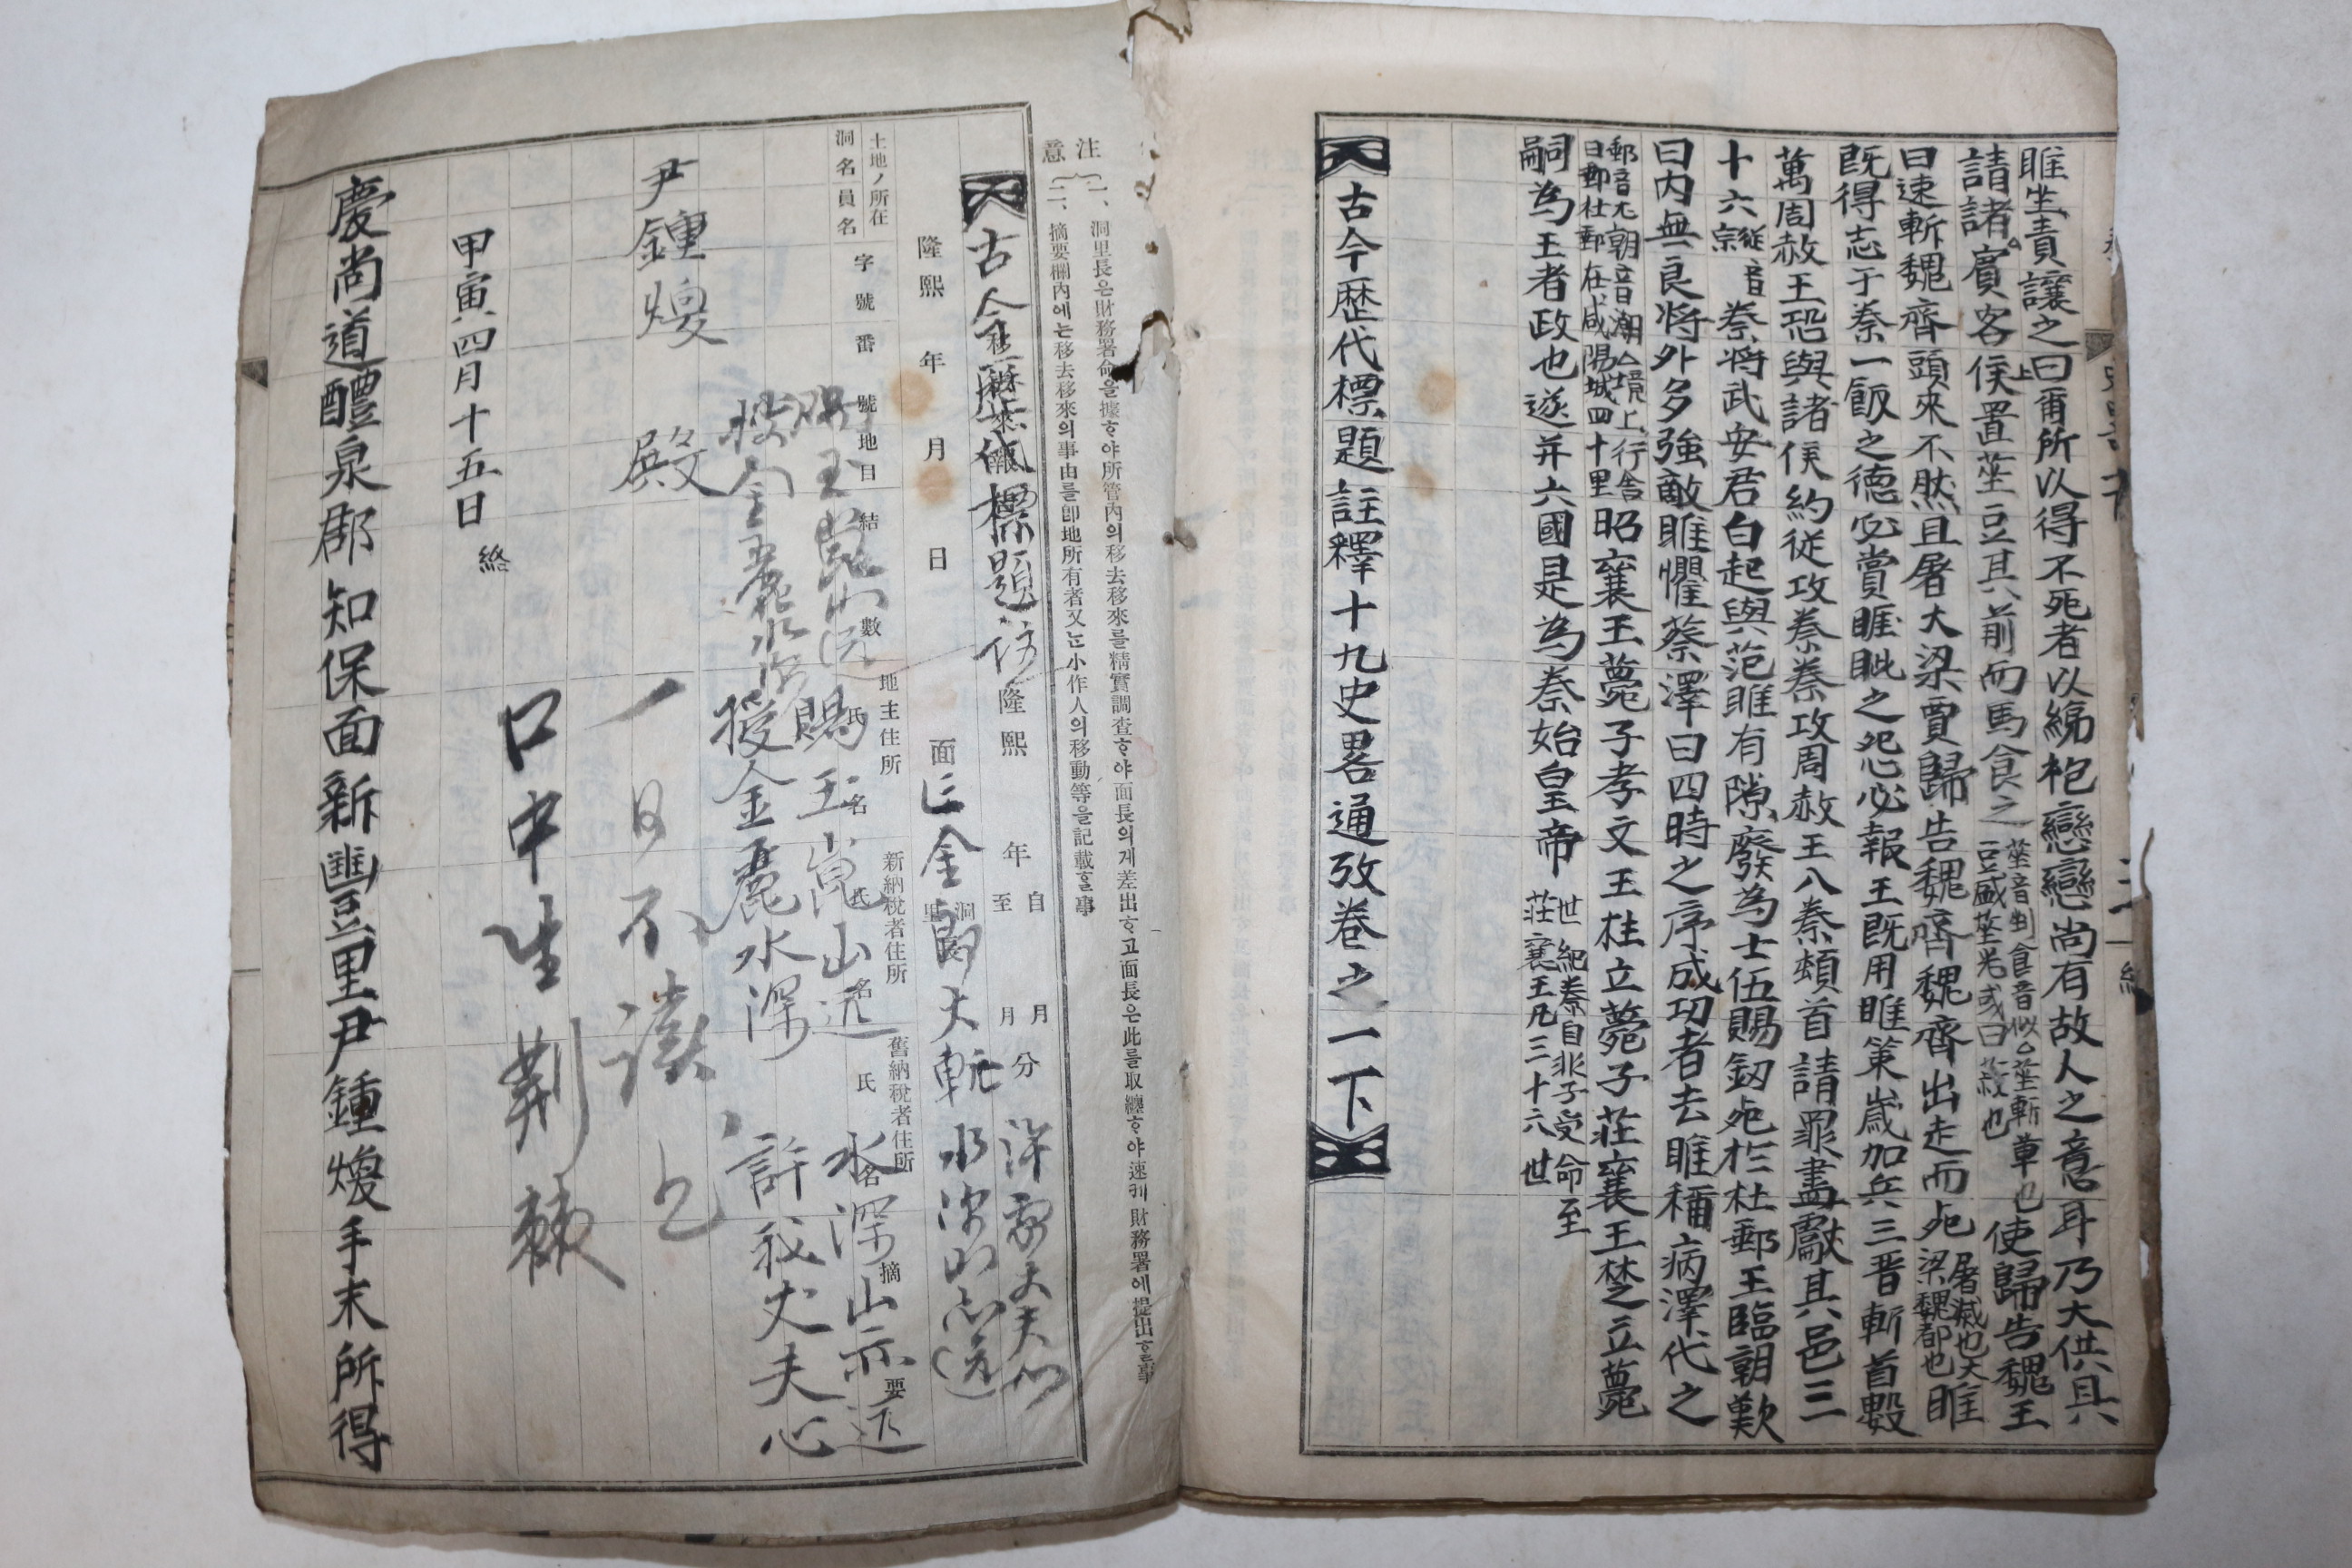 睢坐責讓之曰爾所以得不死者以綈袍戀戀尚有故人之意耳乃大供具
請諸賓客侯置莝豆其前而馬食之
莝音剉食音似莝斬草也
豆盛莝光或曰菽也
使歸告魏王
曰速斬魏齊頭來不然且屠大梁賈歸告魏齊魏齊出走而死
屠滅也大
梁魏都也
睢
既得志于秦一飯之德必賞睚眦之怨必報王既用睢策歲加兵三晋斬首數
萬周赧王恐與諸侯約從攻秦秦攻周赧王入秦頓首請罪盡獻其邑三
十六
從音
宗
秦將武安君白起與范睢有隙廢為士伍賜釰死於杜郵王臨朝歎
曰內無良將外多強敵睢懼蔡澤曰四時之序成功者去睢稱病澤代之
郵音尤朝音潮境上行舍
曰郵杜郵在咸陽城四十里
昭襄王薨子孝文王柱立薨子莊襄王楚立薨
嗣為王者政也遂并六國是為秦始皇帝
世紀秦自非子受命至
莊襄王凡三十六世
古今歷代標題註釋十九史畧通攷卷之一下
注意
一、洞里長은財務署命을據ᄒᆞ야所管內의移去移來를精實調查ᄒᆞ야面長의게差出ᄒᆞ고面長은此를取纏ᄒᆞ야速케財務署에提出ᄒᆞᆯ事
二、摘要欄內에는移去移來의事由를卽地所有者又는小作人의移動等을記載ᄒᆞᆯ事
古今歷代標題
隆熙 年 自 月
至 月 分
隆熙 年 月 日
面
洞里長
土地ノ所在
洞名員名
字號番號
地目
結數
地主住所氏名
新納稅者住所氏名
舊納稅者住所氏名
摘要
賜玉崑山远
水深山亦远
授金麗水深
許我丈夫心
尹鍾煥
殿
一日不讀
口中生荊棘
甲寅四月十五日
終
慶尚道醴泉郡知保面新豐里尹鍾煥手末所得